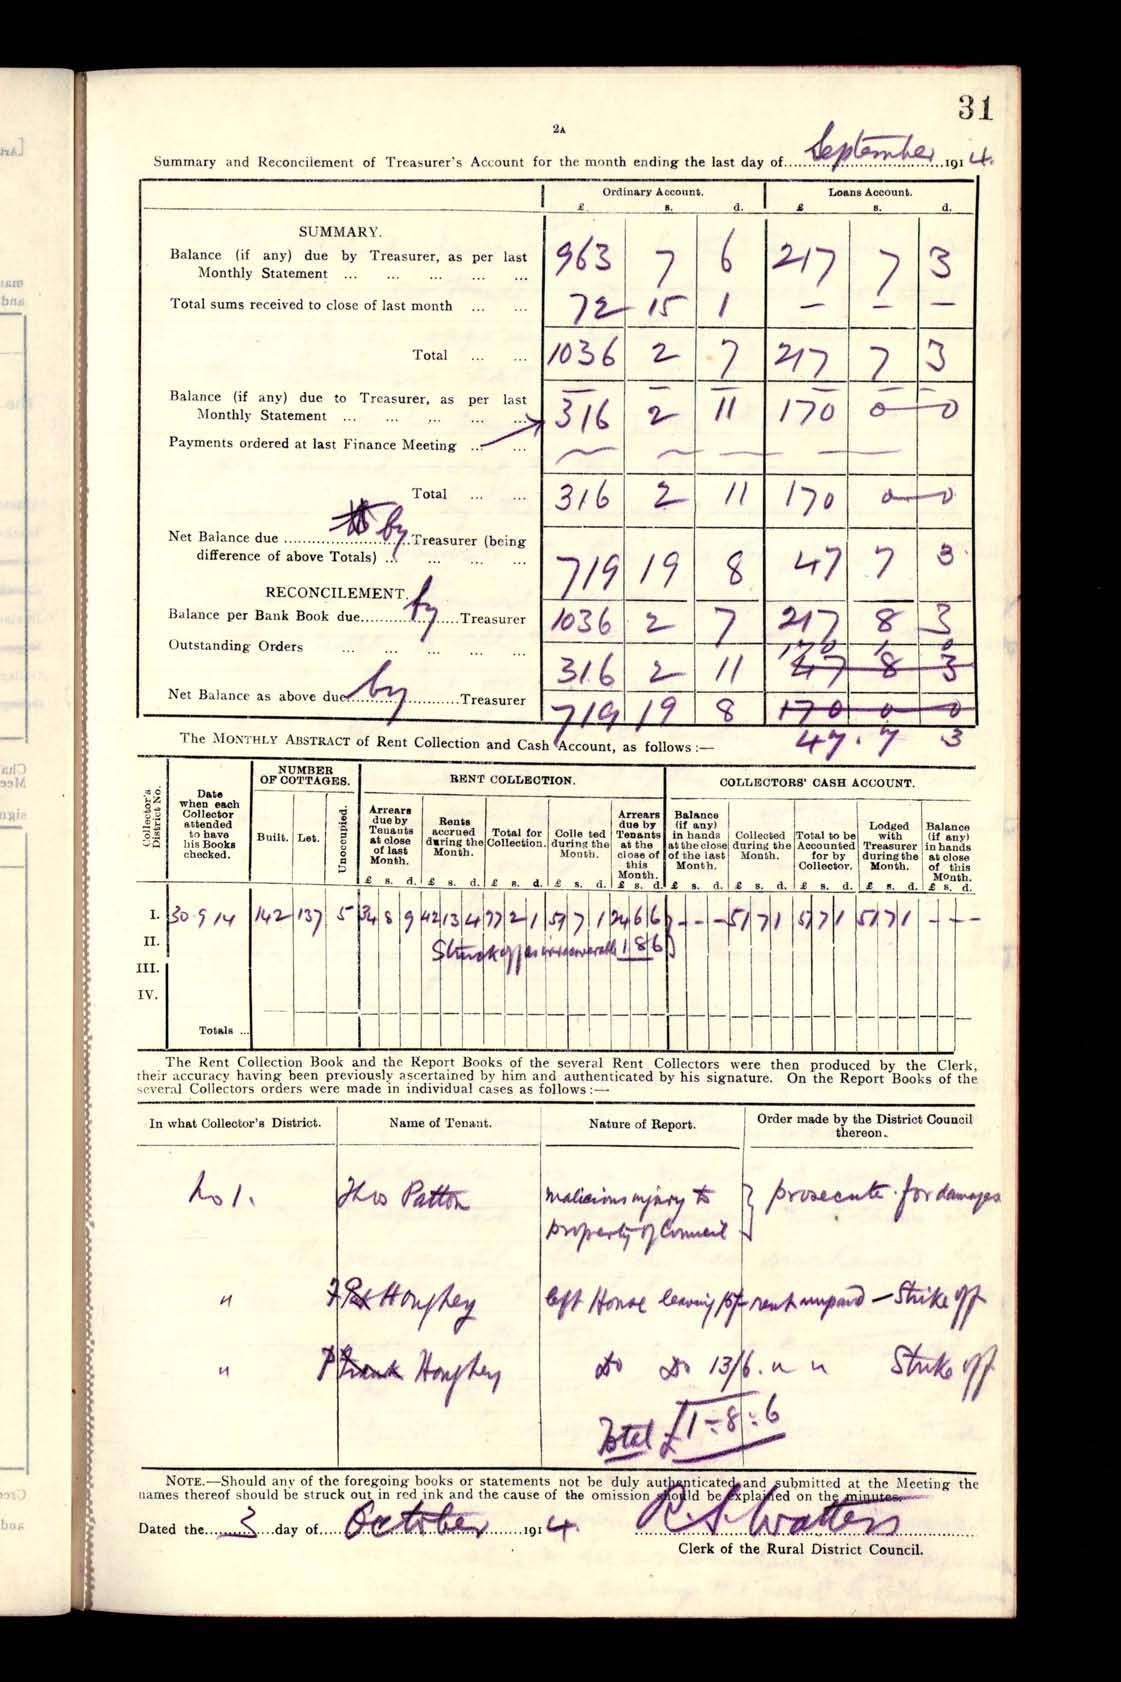 31
2A
Summary and Reconcilement of Treasurer's Account for the month ending the last day of September 1914.
Ordinary Account. Loans Account.
£ s. d. £ s. d.
SUMMARY.
Balance (if any) due by Treasurer, as per last
Monthly Statement ... ... ... ... ... 963 7 6 217 7 3
Total sums received to close of last month ... ... 72 15 1 — — —
Total ... ... 1036 2 7 217 7 3
Balance (if any) due to Treasurer, as per last
Monthly Statement ... ... ... ... ... 316 2 11 170 0 0
Payments ordered at last Finance Meeting ... ...
Total ... ... 316 2 11 170 0 0
Net Balance due by Treasurer (being
difference of above Totals) ... ... ... ... 719 19 8 47 7 3
RECONCILEMENT.
Balance per Bank Book due by Treasurer 1036 2 7 217 8 3
Outstanding Orders ... ... ... ... ... 316 2 11 170 1 0
47 8 3
Net Balance as above due by Treasurer 719 19 8 170 0 0
47. 7 3
The MONTHLY ABSTRACT of Rent Collection and Cash Account, as follows :—
Collector's District No.
Date when each Collector attended to have his Books checked.
NUMBER OF COTTAGES.
Built. Let. Unoccupied.
RENT COLLECTION.
Arrears due by Tenants at close of last Month.
Rents accrued during the Month.
Total for Collection.
Colle ted during the Month.
Arrears due by Tenants at the close of this Month.
COLLECTORS' CASH ACCOUNT.
Balance (if any) in hands at the close of the last Month.
Collected during the Month.
Total to be Accounted for by Collector.
Lodged with Treasurer during the Month.
Balance (if any) in hands at close of this Month.
£ s. d. £ s. d. £ s. d. £ s. d. £ s. d. £ s. d. £ s. d. £ s. d. £ s. d. £ s. d.
I. 30.9.14 142 137 5 34 8 9 42 13 4 77 2 1 51 7 1 24 6 6 - - - 51 7 1 51 7 1 51 7 1 - - -
II. Struck off as irrecoverable 1 8 6
III.
IV.
Totals ...
The Rent Collection Book and the Report Books of the several Rent Collectors were then produced by the Clerk,
their accuracy having been previously ascertained by him and authenticated by his signature. On the Report Books of the
several Collectors orders were made in individual cases as follows :—
In what Collector's District. Name of Tenant. Nature of Report. Order made by the District Council thereon.
No 1. Thos Patton malicious injury to prosecute for damages
property of Council
" F Pat Houghey left House leaving 15/- rent unpaid — Strike off
" P Frank Houghey Do Do 13/6. " " Strike off
Total £1-8-6
NOTE.—Should any of the foregoing books or statements not be duly authenticated and submitted at the Meeting the
names thereof should be struck out in red ink and the cause of the omission should be explained on the minutes.
Dated the 3 day of October 1914. R. S. Watters
Clerk of the Rural District Council.